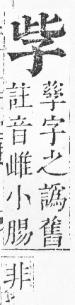 孳字之譌舊
註音雌小腸非